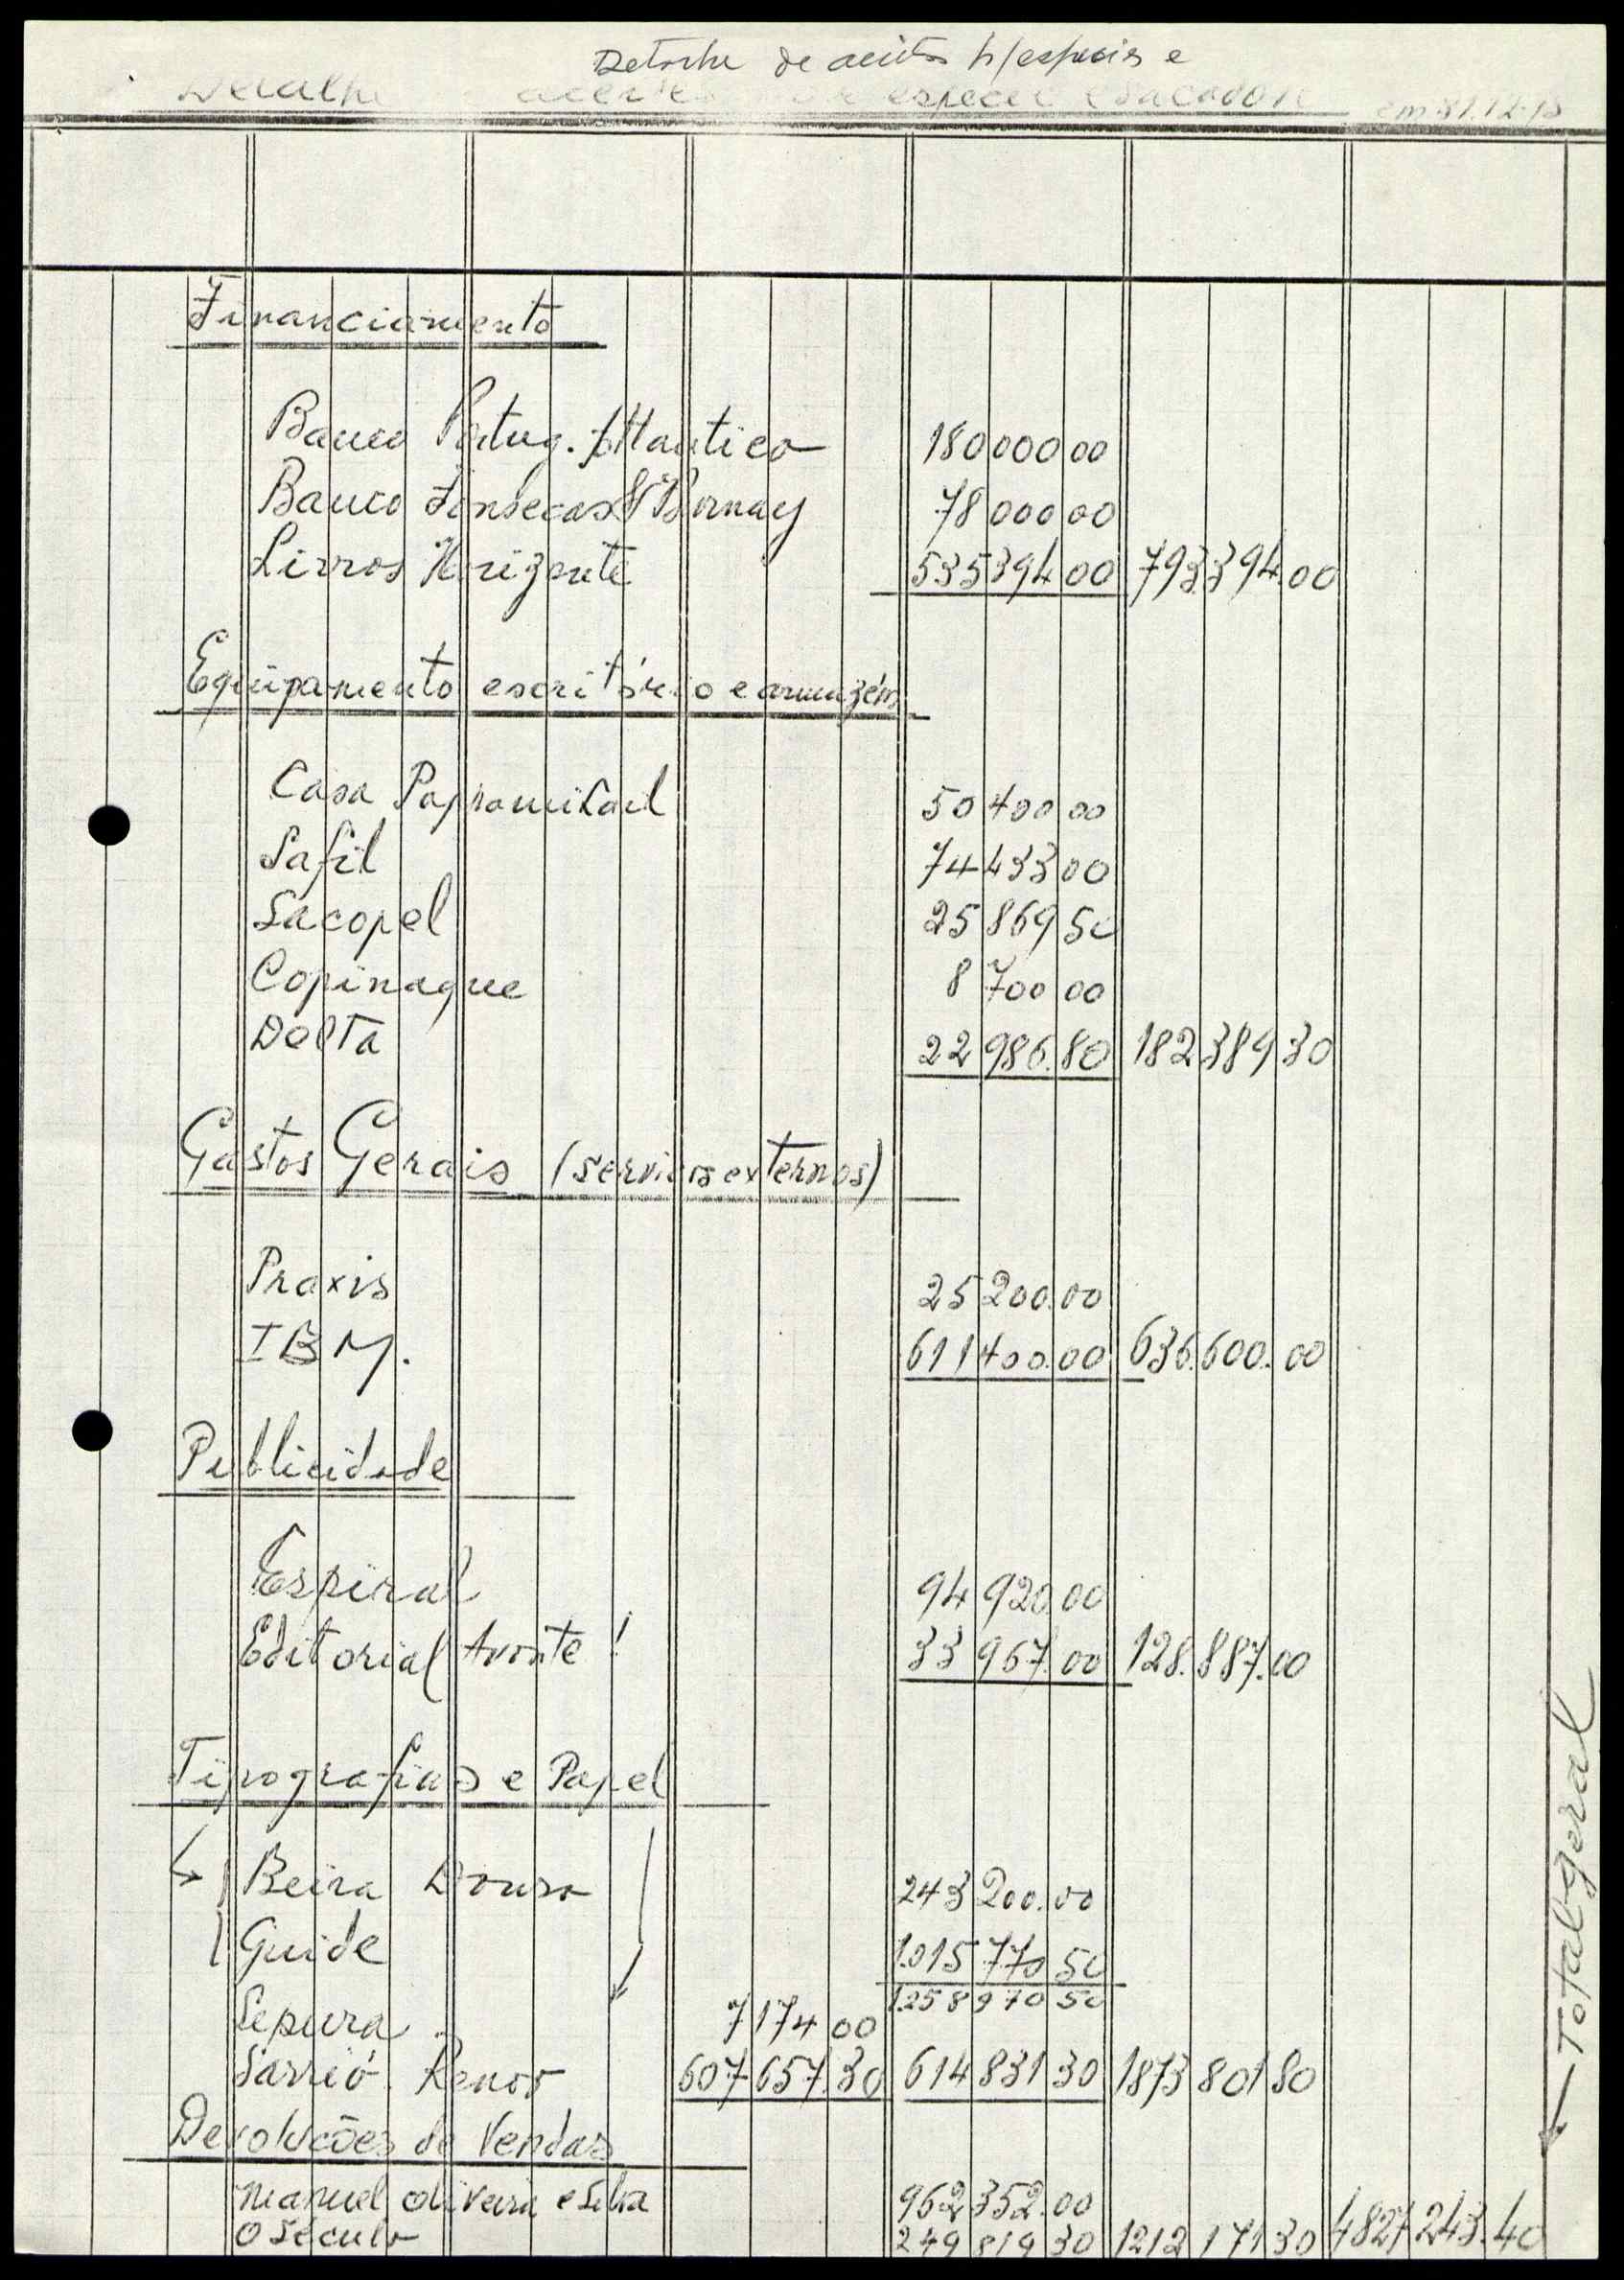 Detalhe de aceites p/espécie e
Detalhe aceites espécie (sacador) em 31.12.75
Financiamento
Banco Portug. Atlantico 180 000 00
Banco Fonsecas & Burnay 78 000 00
Livros Horizonte 535 394 00 793 394.00
Equipamento escritório e armazém
Casa 50 400 00
Safil 74 433 00
Sacopel 25 869 50
Copinaque 8 700 00
Delta 22 986.80 182 389 30
Gastos Gerais (serviços externos)
Praxis 25 200.00
IBM. 611 400.00 636.600.00
Publicidade
Espiral 94 920.00
Editorial Avante! 33 967.00 128.887.00
Tipografias e Papel
Beira Douro 243 200.00
Guide 1.015 770 50
1.258 970 50
Sepura 7 174 00
Sarrió Renov 607 657.30 614 831 30 1873 801 80
Devoluções de Vendas
Manuel Oliveira e Silva 962 352.00
O Século 249 819 30 1212 171 30 4827 243.40
Total geral